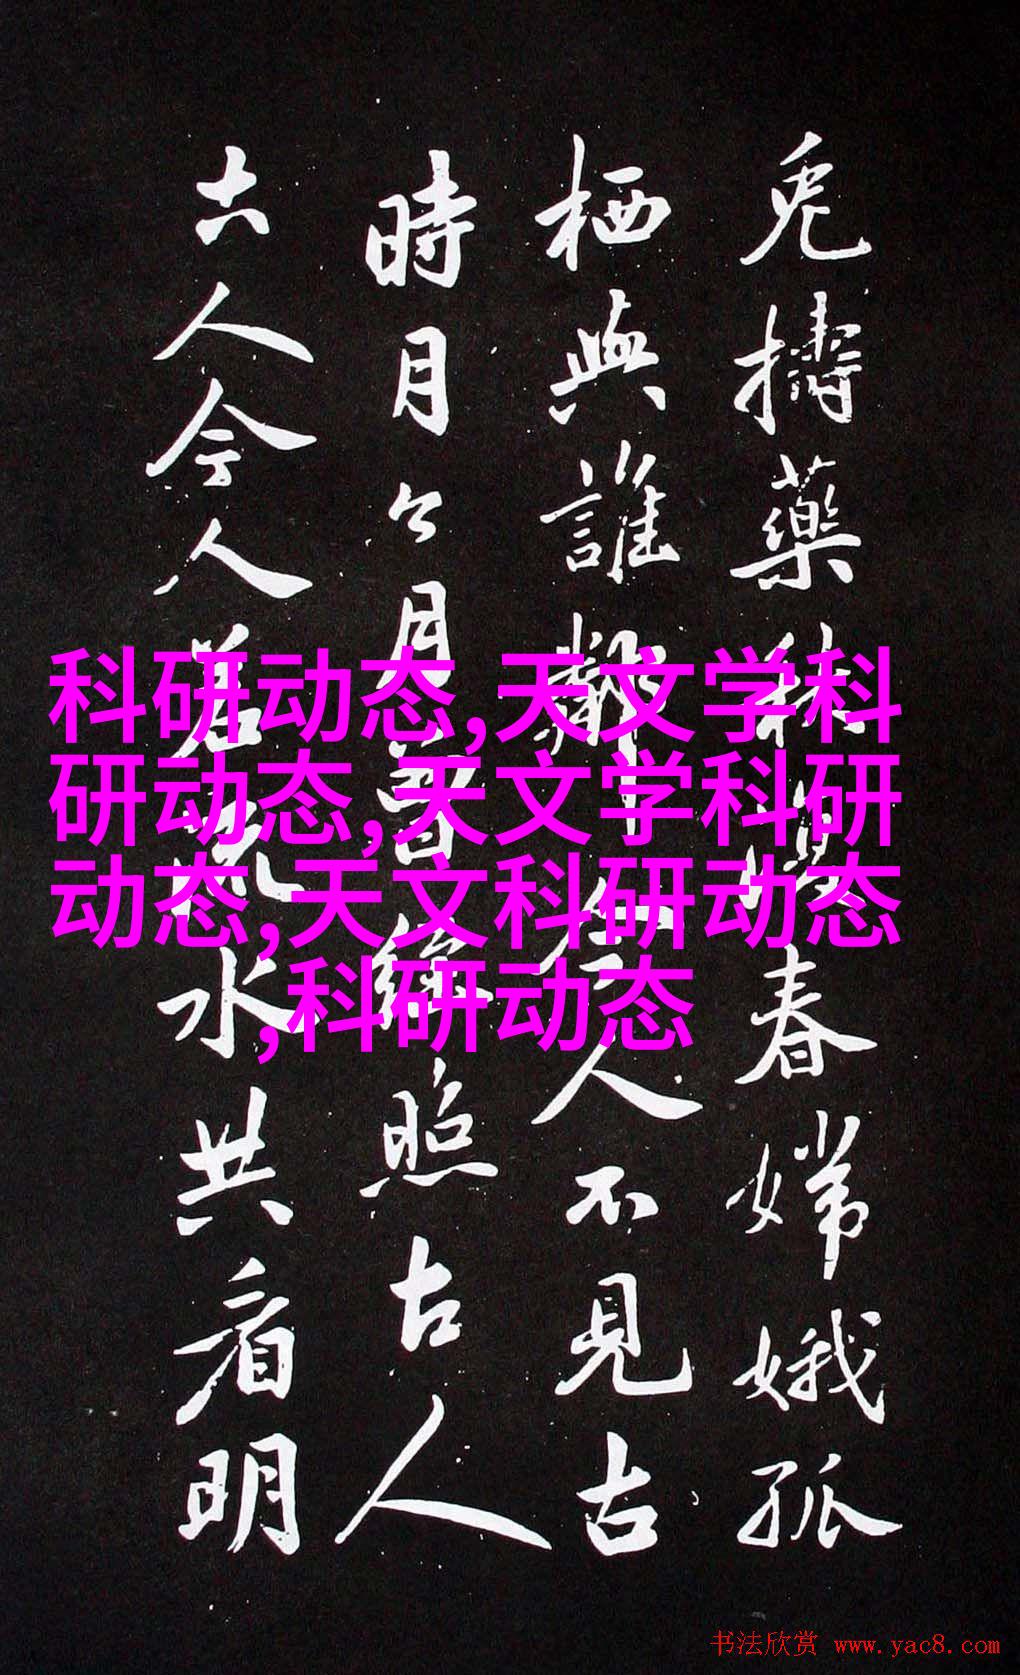 兔擣藥秋春嫦娥孤
栖與誰鄰今人不見古
時月今月曾經照古人
古人今人若流水共看明
科研动态,天文学科
研动态,天文学科研
动态,天文科研动态
,科研动态
书法欣赏 www.yac8.com